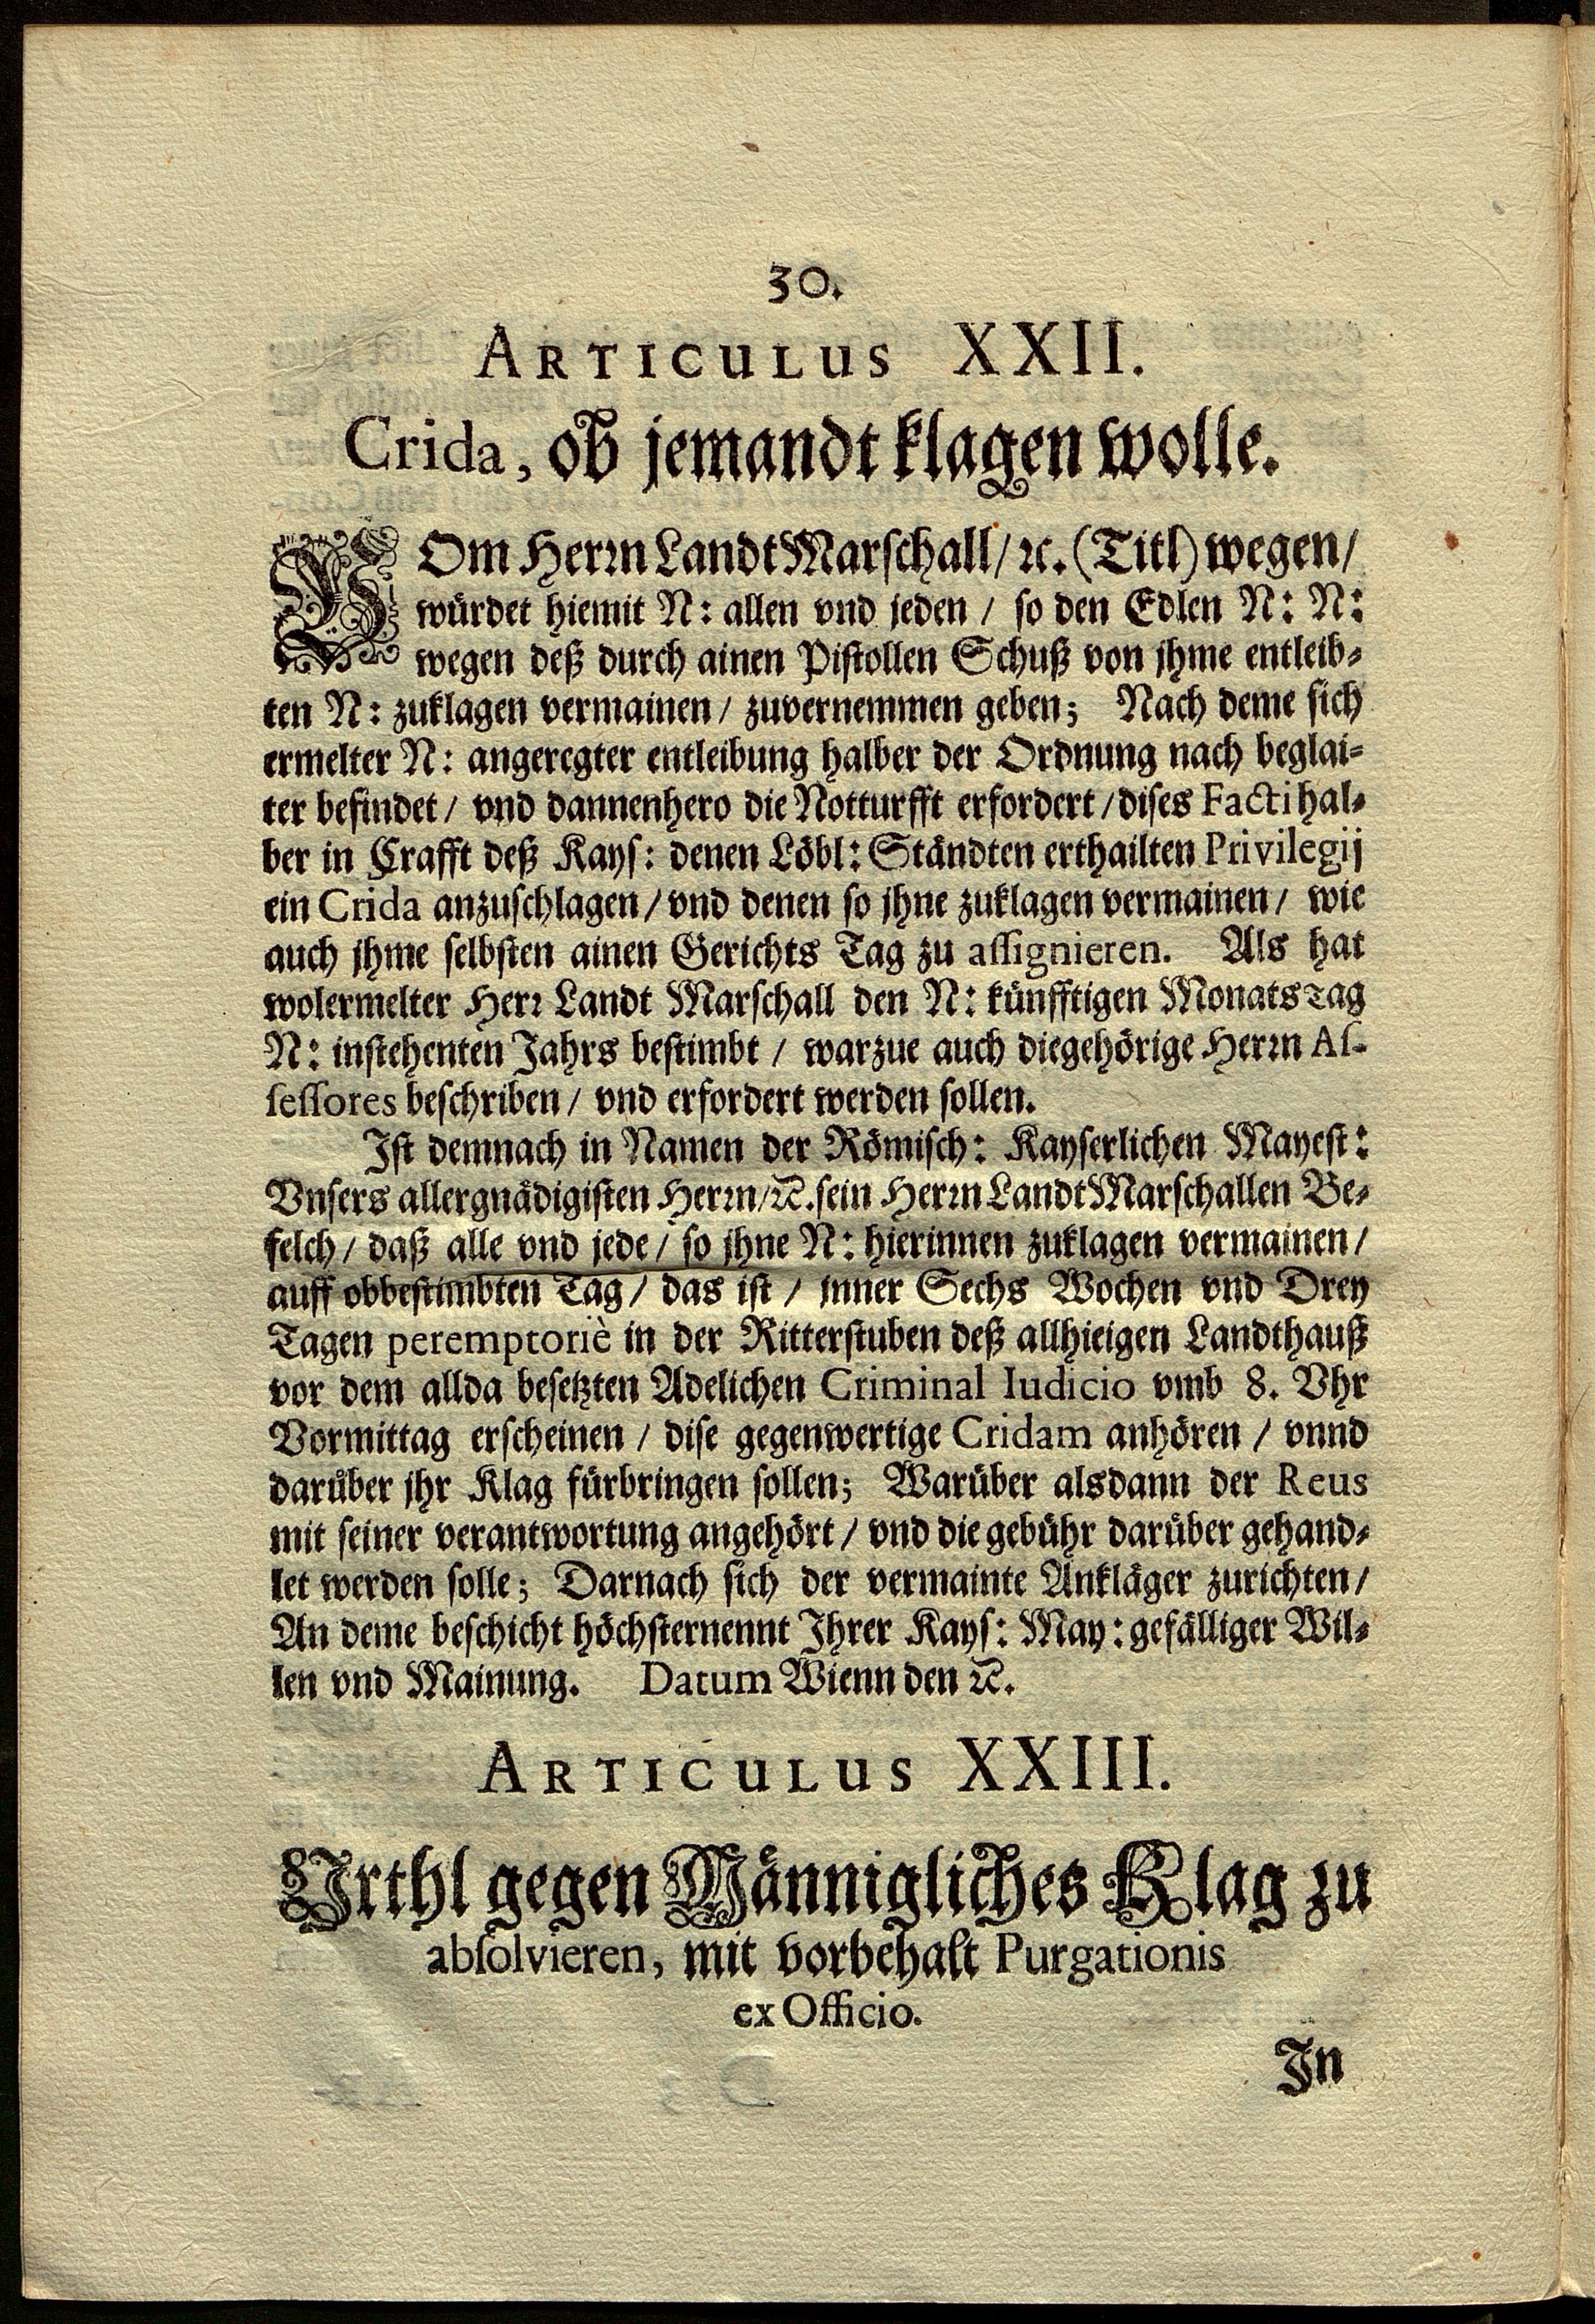 30.
ARTICULUS XXII.
Crida, ob jemandt klagen wolle.
VOm Herrn Landt Marschall/ ꝛc. (Titl) wegen/
würdet hiemit N: allen vnd jeden / so den Edlen N: N:
wegen deß durch ainen Pistollen Schuß von jhme entleib-
ten N: zuklagen vermainen / zuvernemmen geben; Nach deme sich
ermelter N: angeregter entleibung halber der Ordnung nach beglai-
ter befindet / vnd dannenhero die Notturfft erfordert / dises Facti hal-
ber in Crafft deß Kays: denen Löbl: Ständten erthailten Privilegij
ein Crida anzuschlagen / vnd denen so jhne zuklagen vermainen / wie
auch jhme selbsten ainen Gerichts Tag zu assignieren. Als hat
wolermelter Herr Landt Marschall den N: künfftigen Monats Tag
N: instehenten Jahrs bestimbt / warzue auch die gehörige Herrn As-
sessores beschriben / vnd erfordert werden sollen.
Ist demnach in Namen der Römisch: Kayserlichen Mayest:
Vnsers allergnädigisten Herrn / ꝛc. sein Herrn Landt Marschallen Be-
felch / daß alle vnd jede / so jhne N: hierinnen zuklagen vermainen /
auff obbestimbten Tag / das ist / jnner Sechs Wochen vnd Drey
Tagen peremptoriè in der Ritterstuben deß allhieigen Landthauß
vor dem allda besetzten Adelichen Criminal Iudicio vmb 8. Vhr
Vormittag erscheinen / dise gegenwertige Cridam anhören / vnnd
darüber jhr Klag fürbringen sollen; Warüber alsdann der Reus
mit seiner verantwortung angehört / vnd die gebühr darüber gehand-
let werden solle; Darnach sich der vermainte Ankläger zurichten /
An deme beschicht höchsternennt Ihrer Kays: May: gefälliger Wil-
len vnd Mainung. Datum Wienn den ꝛc.
ARTICULUS XXIII.
Vrthl gegen Männigliches Klag zu
absolvieren, mit vorbehalt Purgationis
ex Officio.
In